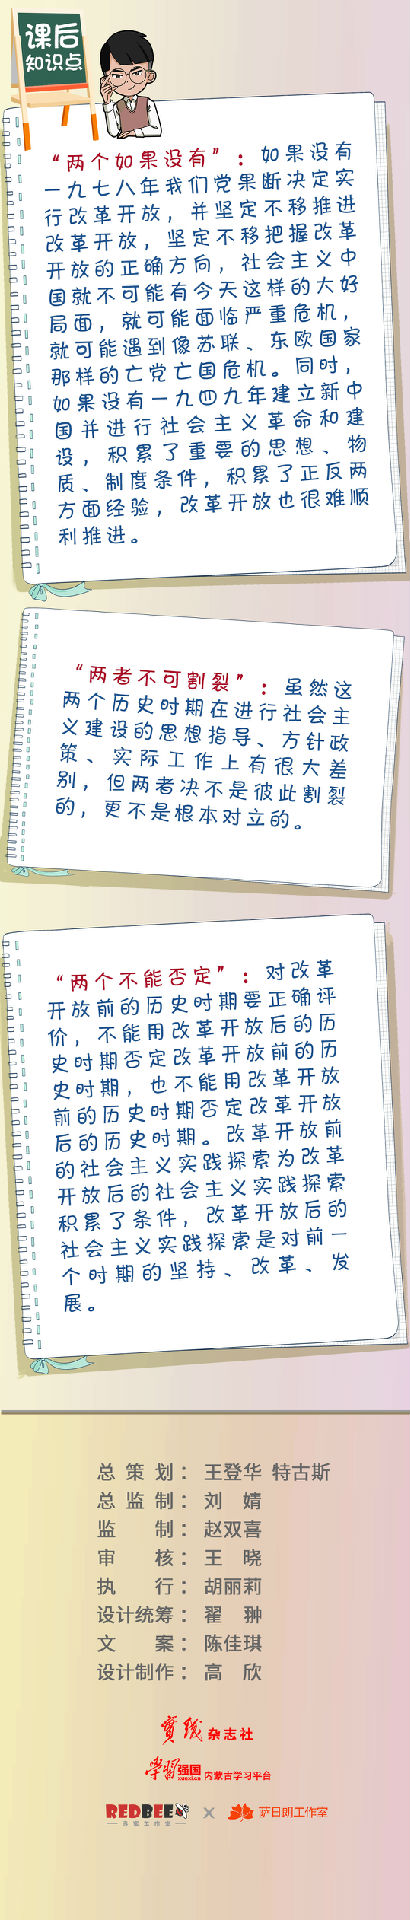 课后
知识点
“两个如果没有”：如果没有
一九七八年我们党果断决定实
行改革开放，并坚定不移推进
改革开放，坚定不移把握改革
开放的正确方向，社会主义中
国就不可能有今天这样的大好
局面，就可能面临严重危机，
就可能遇到像苏联、东欧国家
那样的亡党亡国危机。同时，
如果没有一九四九年建立新中
国并进行社会主义革命和建
设，积累了重要的思想、物
质、制度条件，积累了正反两
方面经验，改革开放也很难顺
利推进。
“两者不可割裂”：虽然这
两个历史时期在进行社会主
义建设的思想指导、方针政
策、实际工作上有很大差
别，但两者决不是彼此割裂
的，更不是根本对立的。
“两个不能否定”：对改革
开放前的历史时期要正确评
价，不能用改革开放后的历
史时期否定改革开放前的历
史时期，也不能用改革开放
前的历史时期否定改革开放
后的历史时期。改革开放前
的社会主义实践探索为改革
开放后的社会主义实践探索
积累了条件，改革开放后的
社会主义实践探索是对前一
个时期的坚持、改革、发
展。
总策划：王登华 特古斯
总监制：刘 婧
监 制：赵双喜
审 核：王 晓
执 行：胡丽莉
设计统筹：翟 翀
文 案：陈佳琪
设计制作：高 欣
实践 杂志社
学习强国 xuexi.cn 内蒙古学习平台
REDBEE × 萨日朗工作室